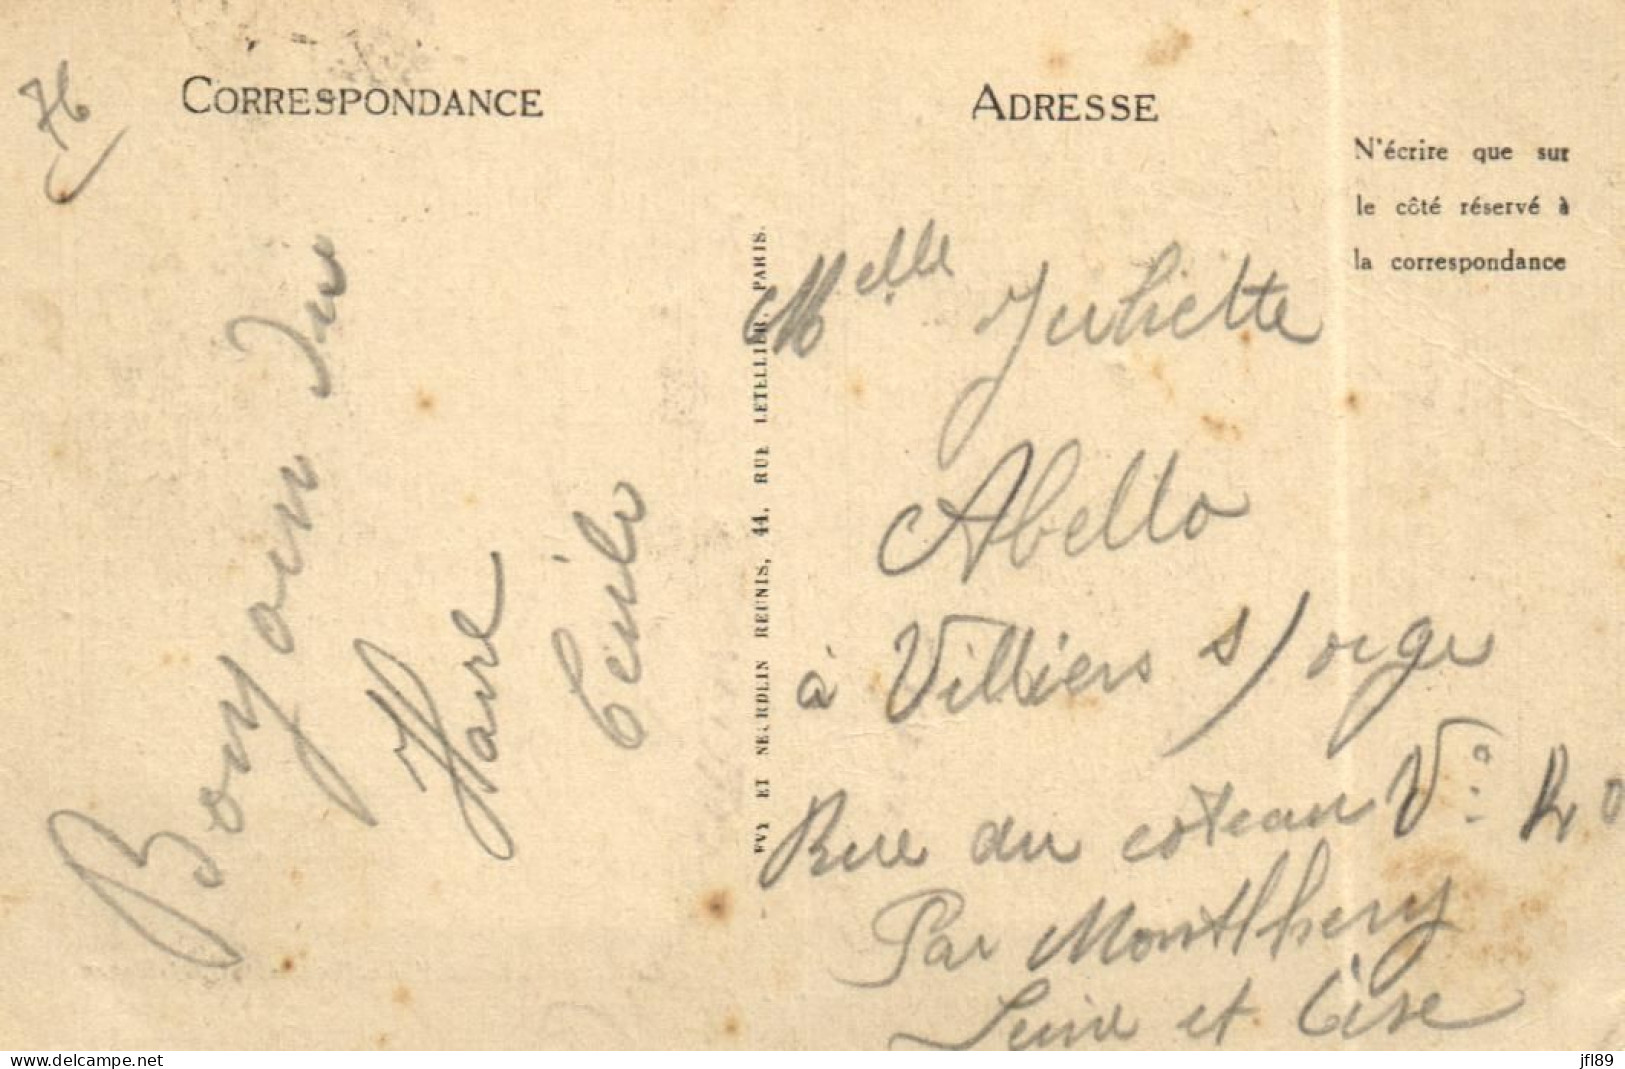 76
CORRESPONDANCE
Bonjour du
Havre
Cécile
EVY ET NEURDEIN REUNIS, 44, RUE LETELLIER, PARIS.
ADRESSE
N'écrire que sur
le côté réservé à
la correspondance
Melle Juliette
Abello
à Villiers s/orge
Rue du coteau
Par Montlhery
Seine et Oise
www.delcampe.net
jfl89